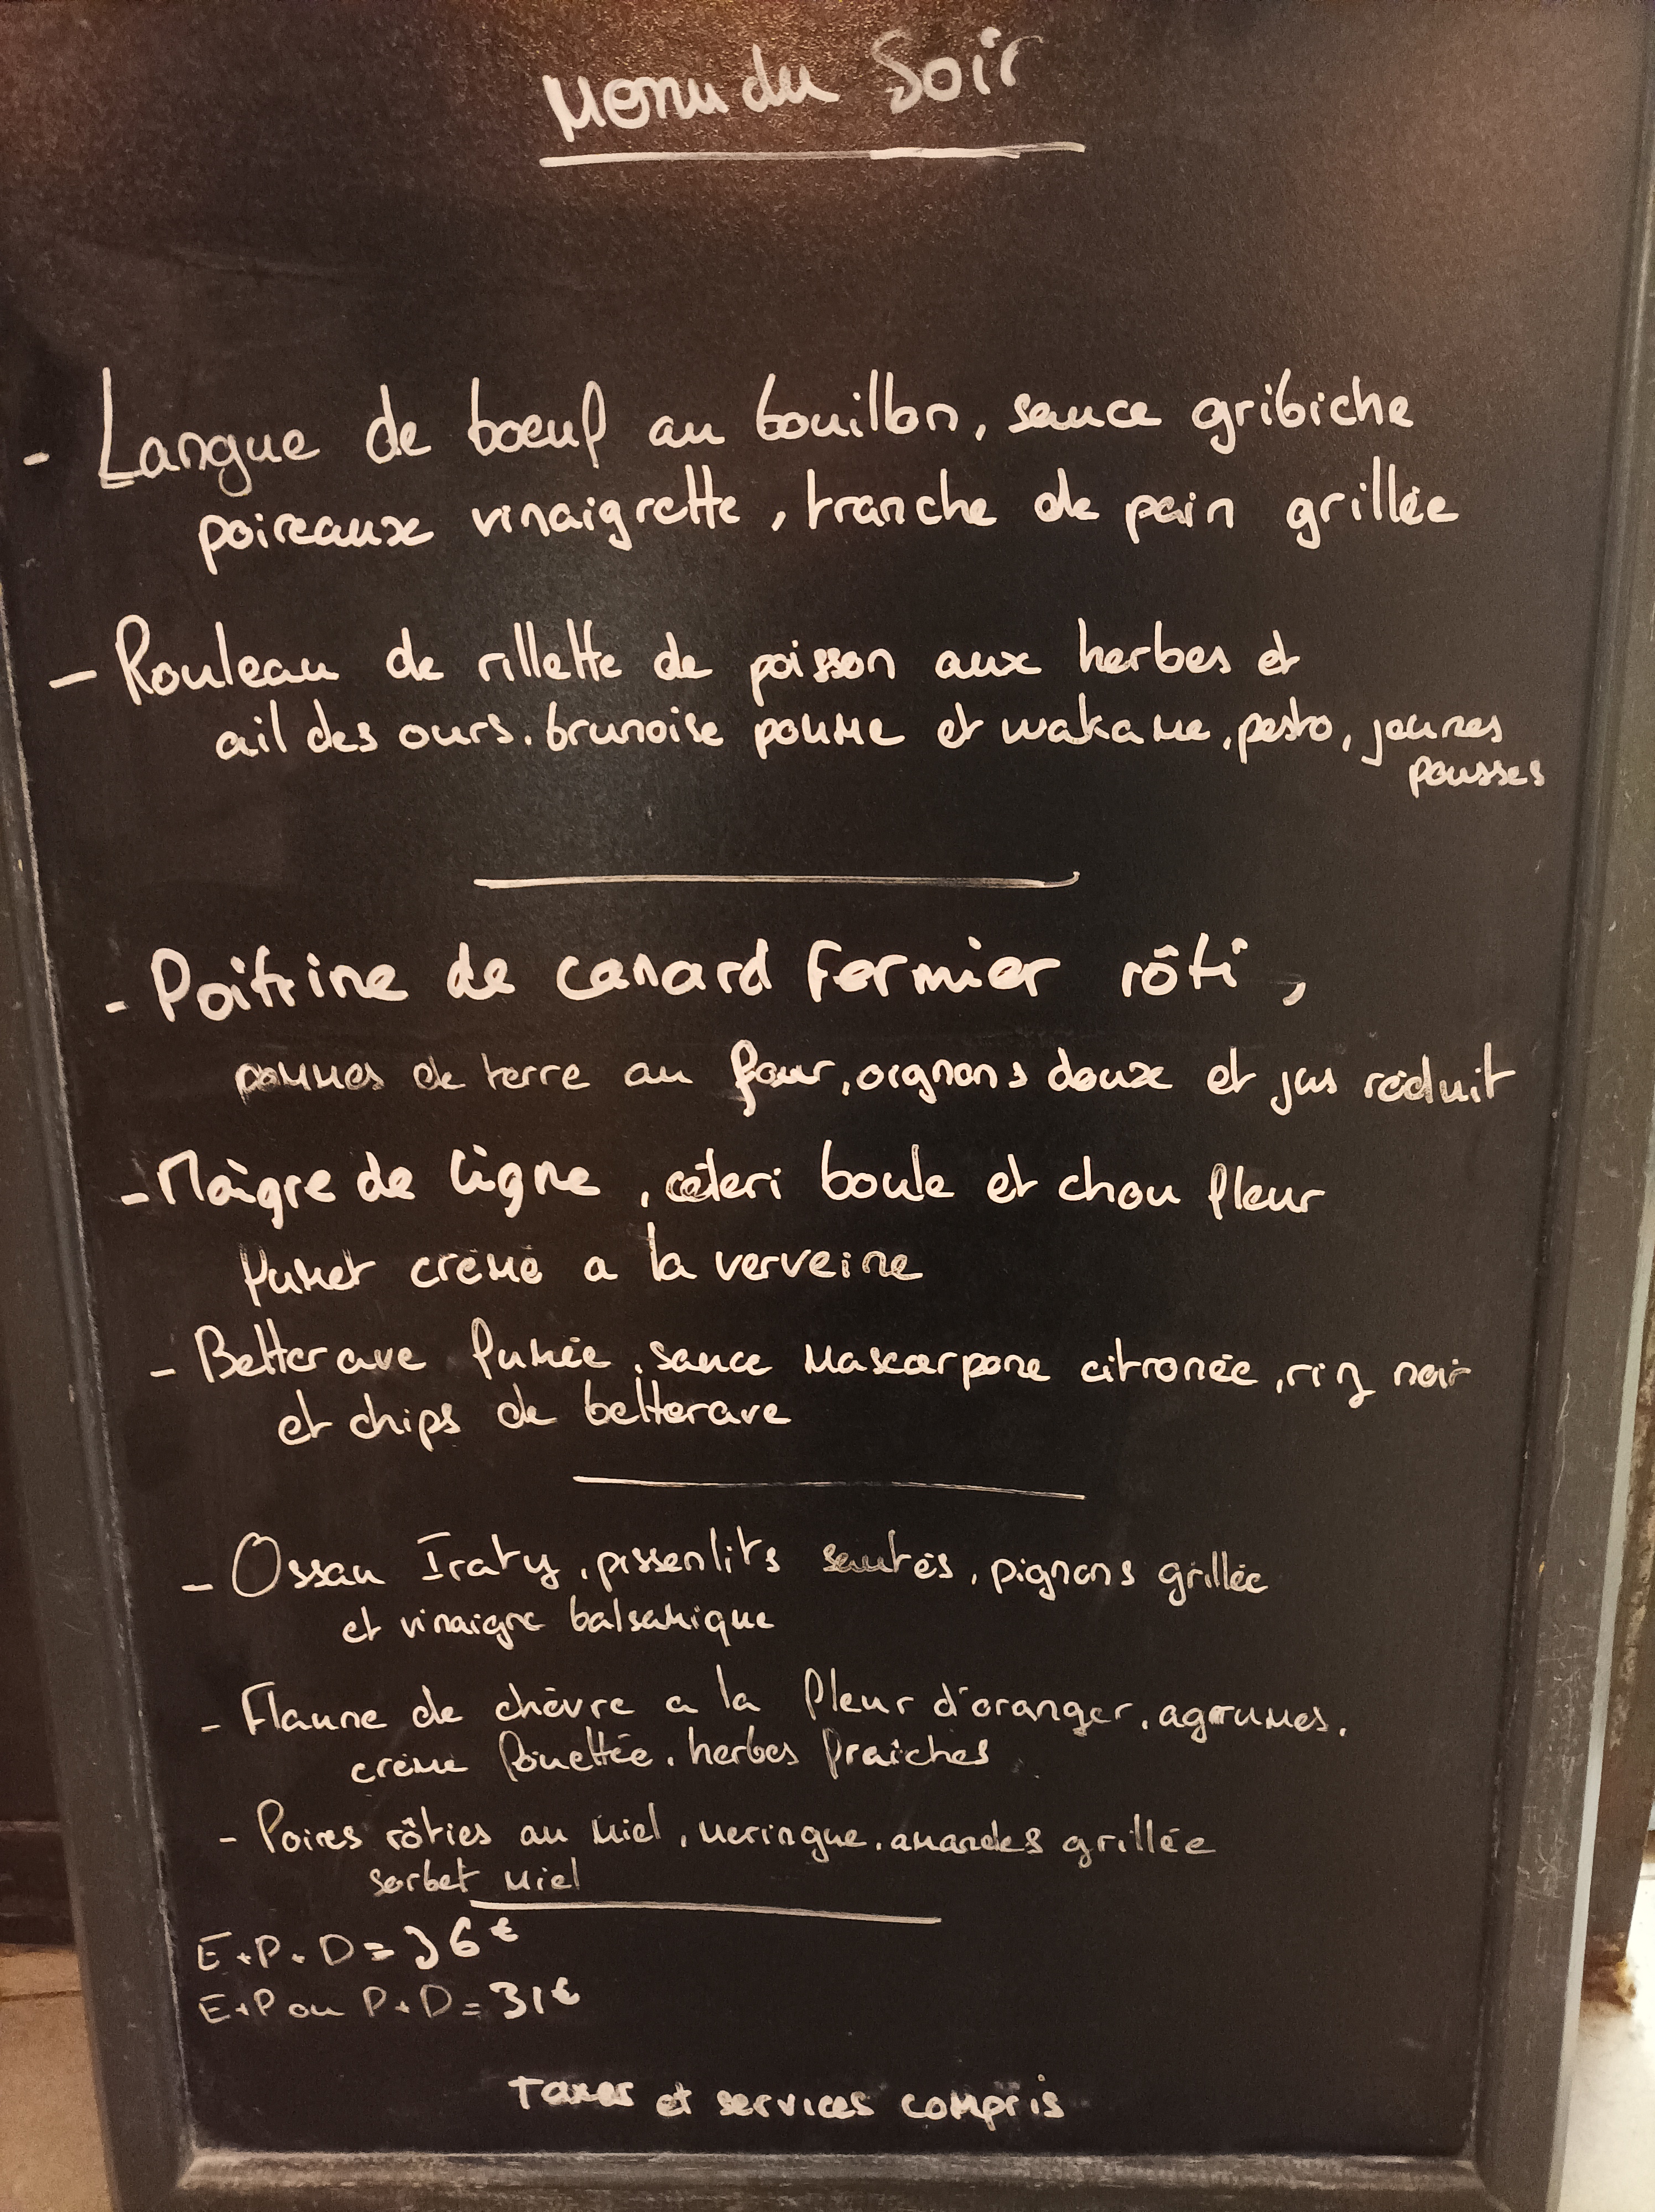 Menu du Soir
- Langue de boeuf au bouillon, sauce gribiche
poireaux vinaigrette, tranche de pain grillée
- Rouleau de rillette de poisson aux herbes et
ail des ours, brunoise pomme et wakame, pesto, jeunes
pousses
- Poitrine de canard Fermier rôti,
pommes de terre au four, oignons doux et jus réduit
- Maigre de ligne, céleri boule et chou fleur
fumet crème a la verveine
- Betterave fumée, sauce mascarpone citronée, riz noir
et chips de betterave
- Ossau Iraty, pissenlits sautés, pignons grillée
et vinaigre balsamique
- Flaune de chèvre a la fleur d'oranger, agrumes,
crème fouettée, herbes fraiches
- Poires rôties au miel, meringue, amandes grillée
sorbet miel
E+P+D = 36€
E+P ou P+D = 31€
Taxes et services compris